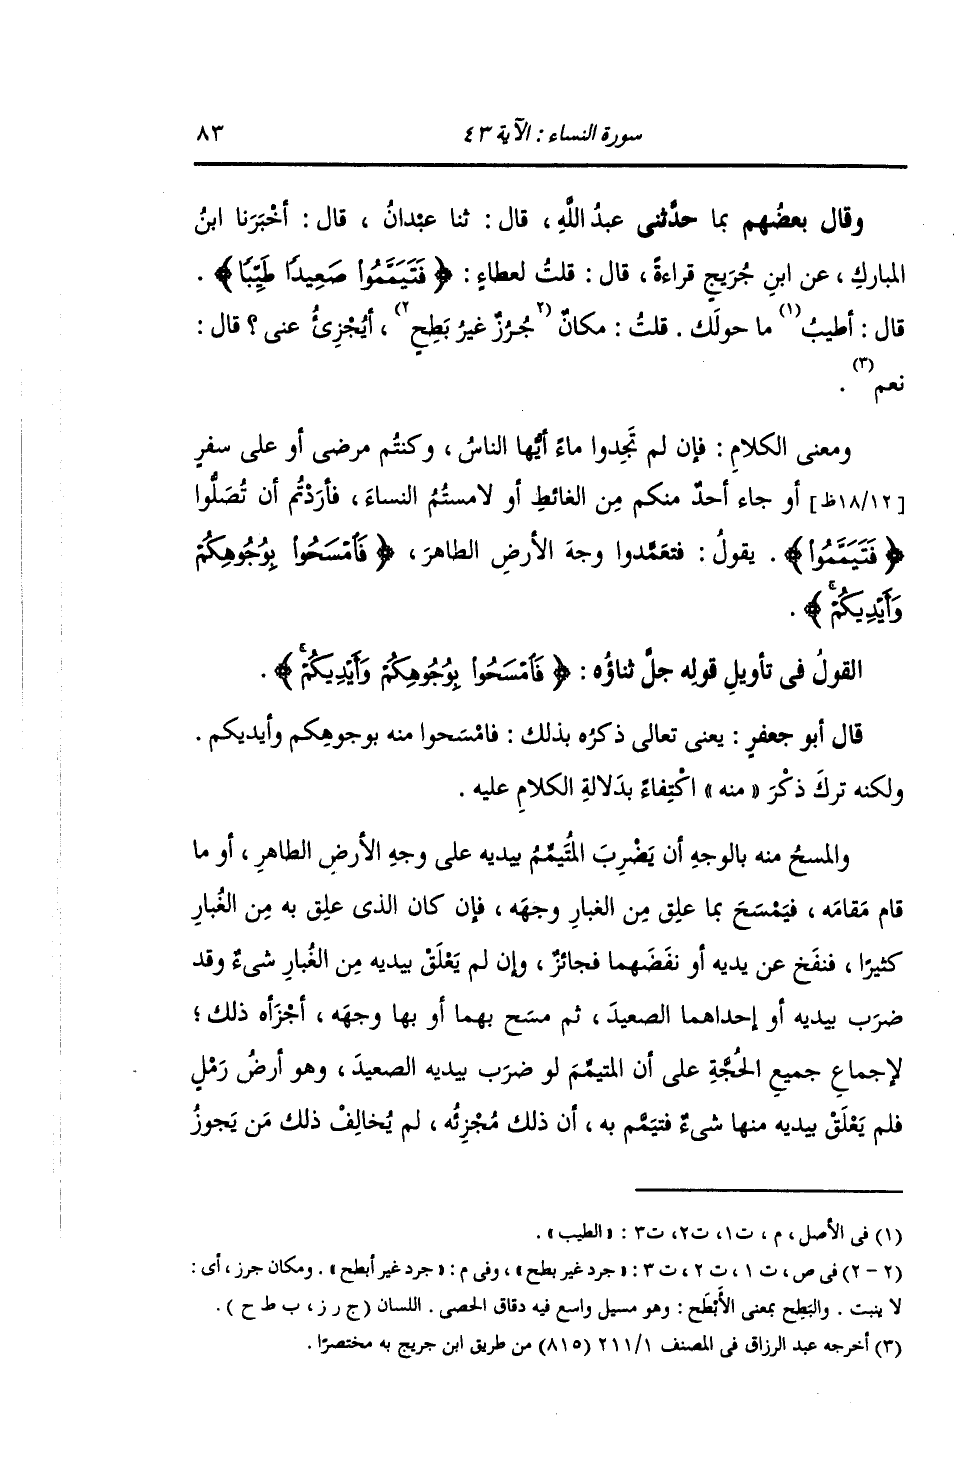 سورة النساء : الآية ٤٣
٨٣
وقال بعضُهم بما حدَّثنى عبدُ اللَّهِ ، قال : ثنا عبْدانُ ، قال : أخْبَرَنا ابنُ
المباركِ ، عن ابنِ جُرَيجٍ قراءةً ، قال : قلتُ لعطاءٍ : ﴿ فَتَيَمَّمُواْ صَعِيدًا طَيِّبًا ﴾ .
قال : أطيبُ(١) ما حولَك . قلتُ : مكانٌ (٢جُرُزٌ غيرُ بَطِحٍ٢) ، أيُجْزِئُ عنى ؟ قال :
نعم(٣) .
ومعنى الكلامِ : فإن لم تَجِدوا ماءً أيُّها الناسُ ، وكنتُم مرضى أو على سفرٍ
[١٨/١٢ظ] أو جاء أحدٌ منكم مِن الغائطِ أو لامستُمُ النساءَ ، فأرَدْتُم أن تُصَلُّوا
﴿ فَتَيَمَّمُواْ ﴾ . يقولُ : فتعَمَّدوا وجهَ الأرضِ الطاهرَ ، ﴿ فَٱمْسَحُواْ بِوُجُوهِكُمْ
وَأَيْدِيكُمْۚ ﴾ .
القولُ فى تأويلِ قولِه جلَّ ثناؤُه : ﴿ فَٱمْسَحُواْ بِوُجُوهِكُمْ وَأَيْدِيكُمْۚ ﴾ .
قال أبو جعفرٍ : يعنى تعالى ذكرُه بذلك : فامْسَحوا منه بوجوهِكم وأيديكم .
ولكنه تركَ ذكْرَ « منه » اكْتِفاءً بدَلالةِ الكلامِ عليه .
والمسحُ منه بالوجهِ أن يَضْرِبَ المُتَيمِّمُ بيديه على وجهِ الأرضِ الطاهرِ ، أو ما
قام مَقامَه ، فيَمْسَحَ بما علِق مِن الغبارِ وجهَه ، فإن كان الذى علِق به مِن الغُبارِ
كثيرًا ، فنفَخ عن يديه أو نفَضَهما فجائزٌ ، وإن لم يَعْلَقْ بيديه مِن الغُبارِ شىءٌ وقد
ضرَب بيديه أو إحداهما الصعيدَ ، ثم مسَح بهما أو بها وجهَه ، أجْزَأه ذلك ؛
لإجماعِ جميعِ الحُجَّةِ على أن المتيمِّمَ لو ضرَب بيديه الصعيدَ ، وهو أرضُ رَمْلٍ
فلم يَعْلَقْ بيديه منها شىءٌ فتيَمَّم به ، أن ذلك مُجْزِئُه ، لم يُخالِفْ ذلك مَن يَجوزُ
(١) فى الأصل ، م ، ت١، ت٢، ت٣ : «الطيب» .
(٢ - ٢) فى ص ، ت ١ ، ت ٢ ، ت ٣ : «جرد غير بطح» ، وفى م : «جرد غير أبطح» . ومكان جرز ، أى :
لا ينبت . والبَطِح بمعنى الأَبْطَح : وهو مسيل واسع فيه دقاق الحصى . اللسان (ج ر ز ، ب ط ح ) .
(٣) أخرجه عبد الرزاق فى المصنف ٢١١/١ (٨١٥) من طريق ابن جريج به مختصرًا .